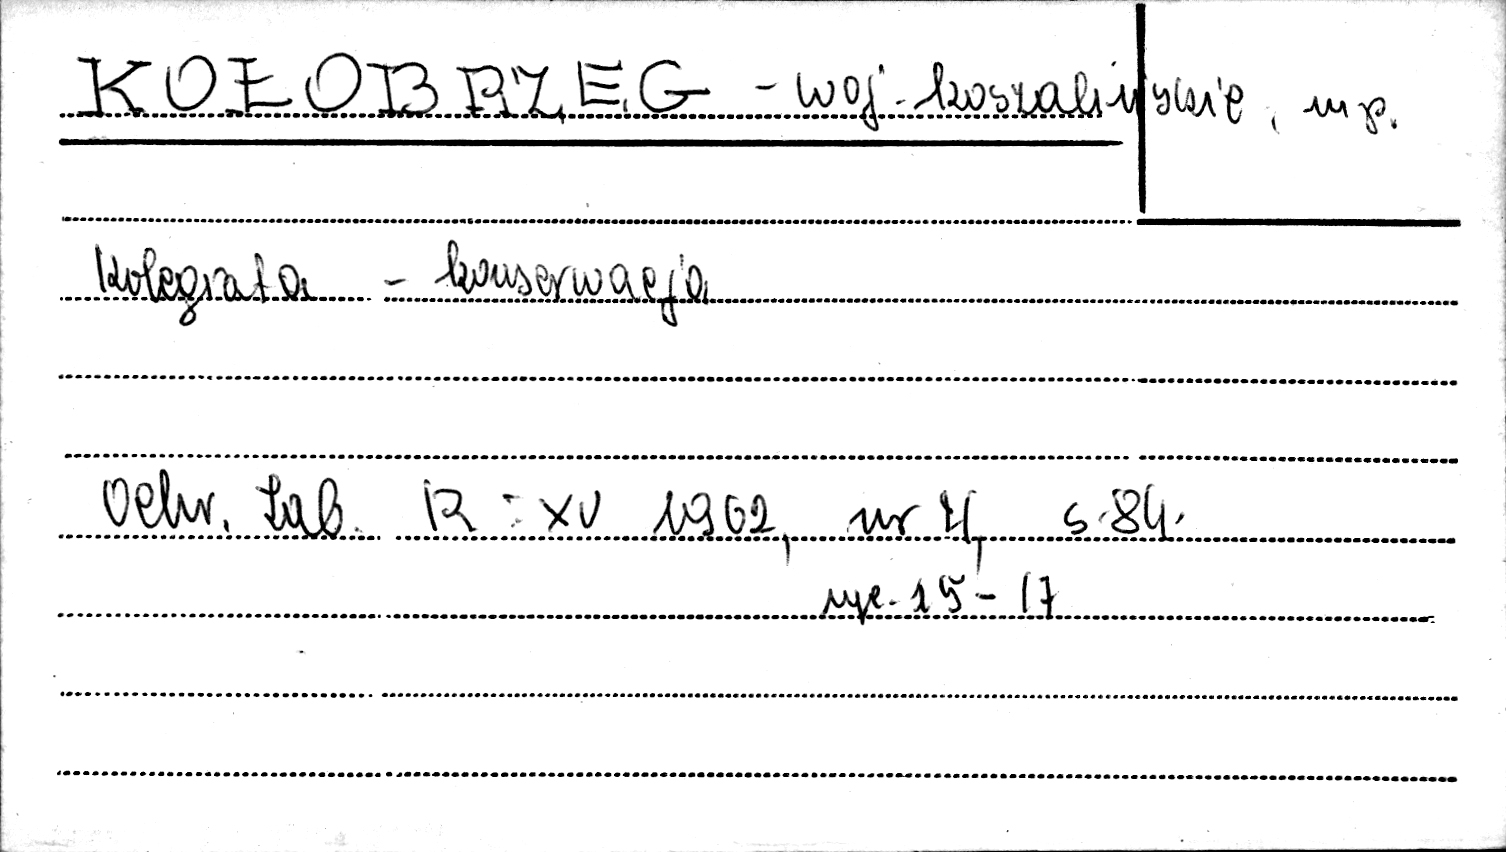 KOŁOBRZEG - woj. koszalińskie, mp.
Kolegiata - konserwacja
Ochr. Zab. R: XV 1962, nr 4, s. 84.
ryc. 15-17